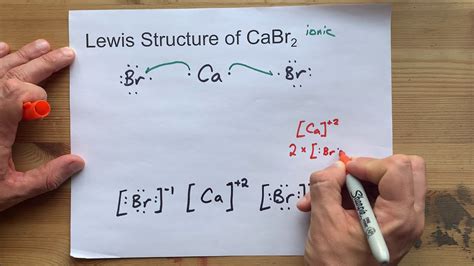 Lewis Structure of CaBr₂ ionic
:Br· ·Ca· ·Br:
[Ca]⁺²
2 × [:Br:
[:Br:]⁻¹ [Ca]⁺² [:Br:]
Sharpie